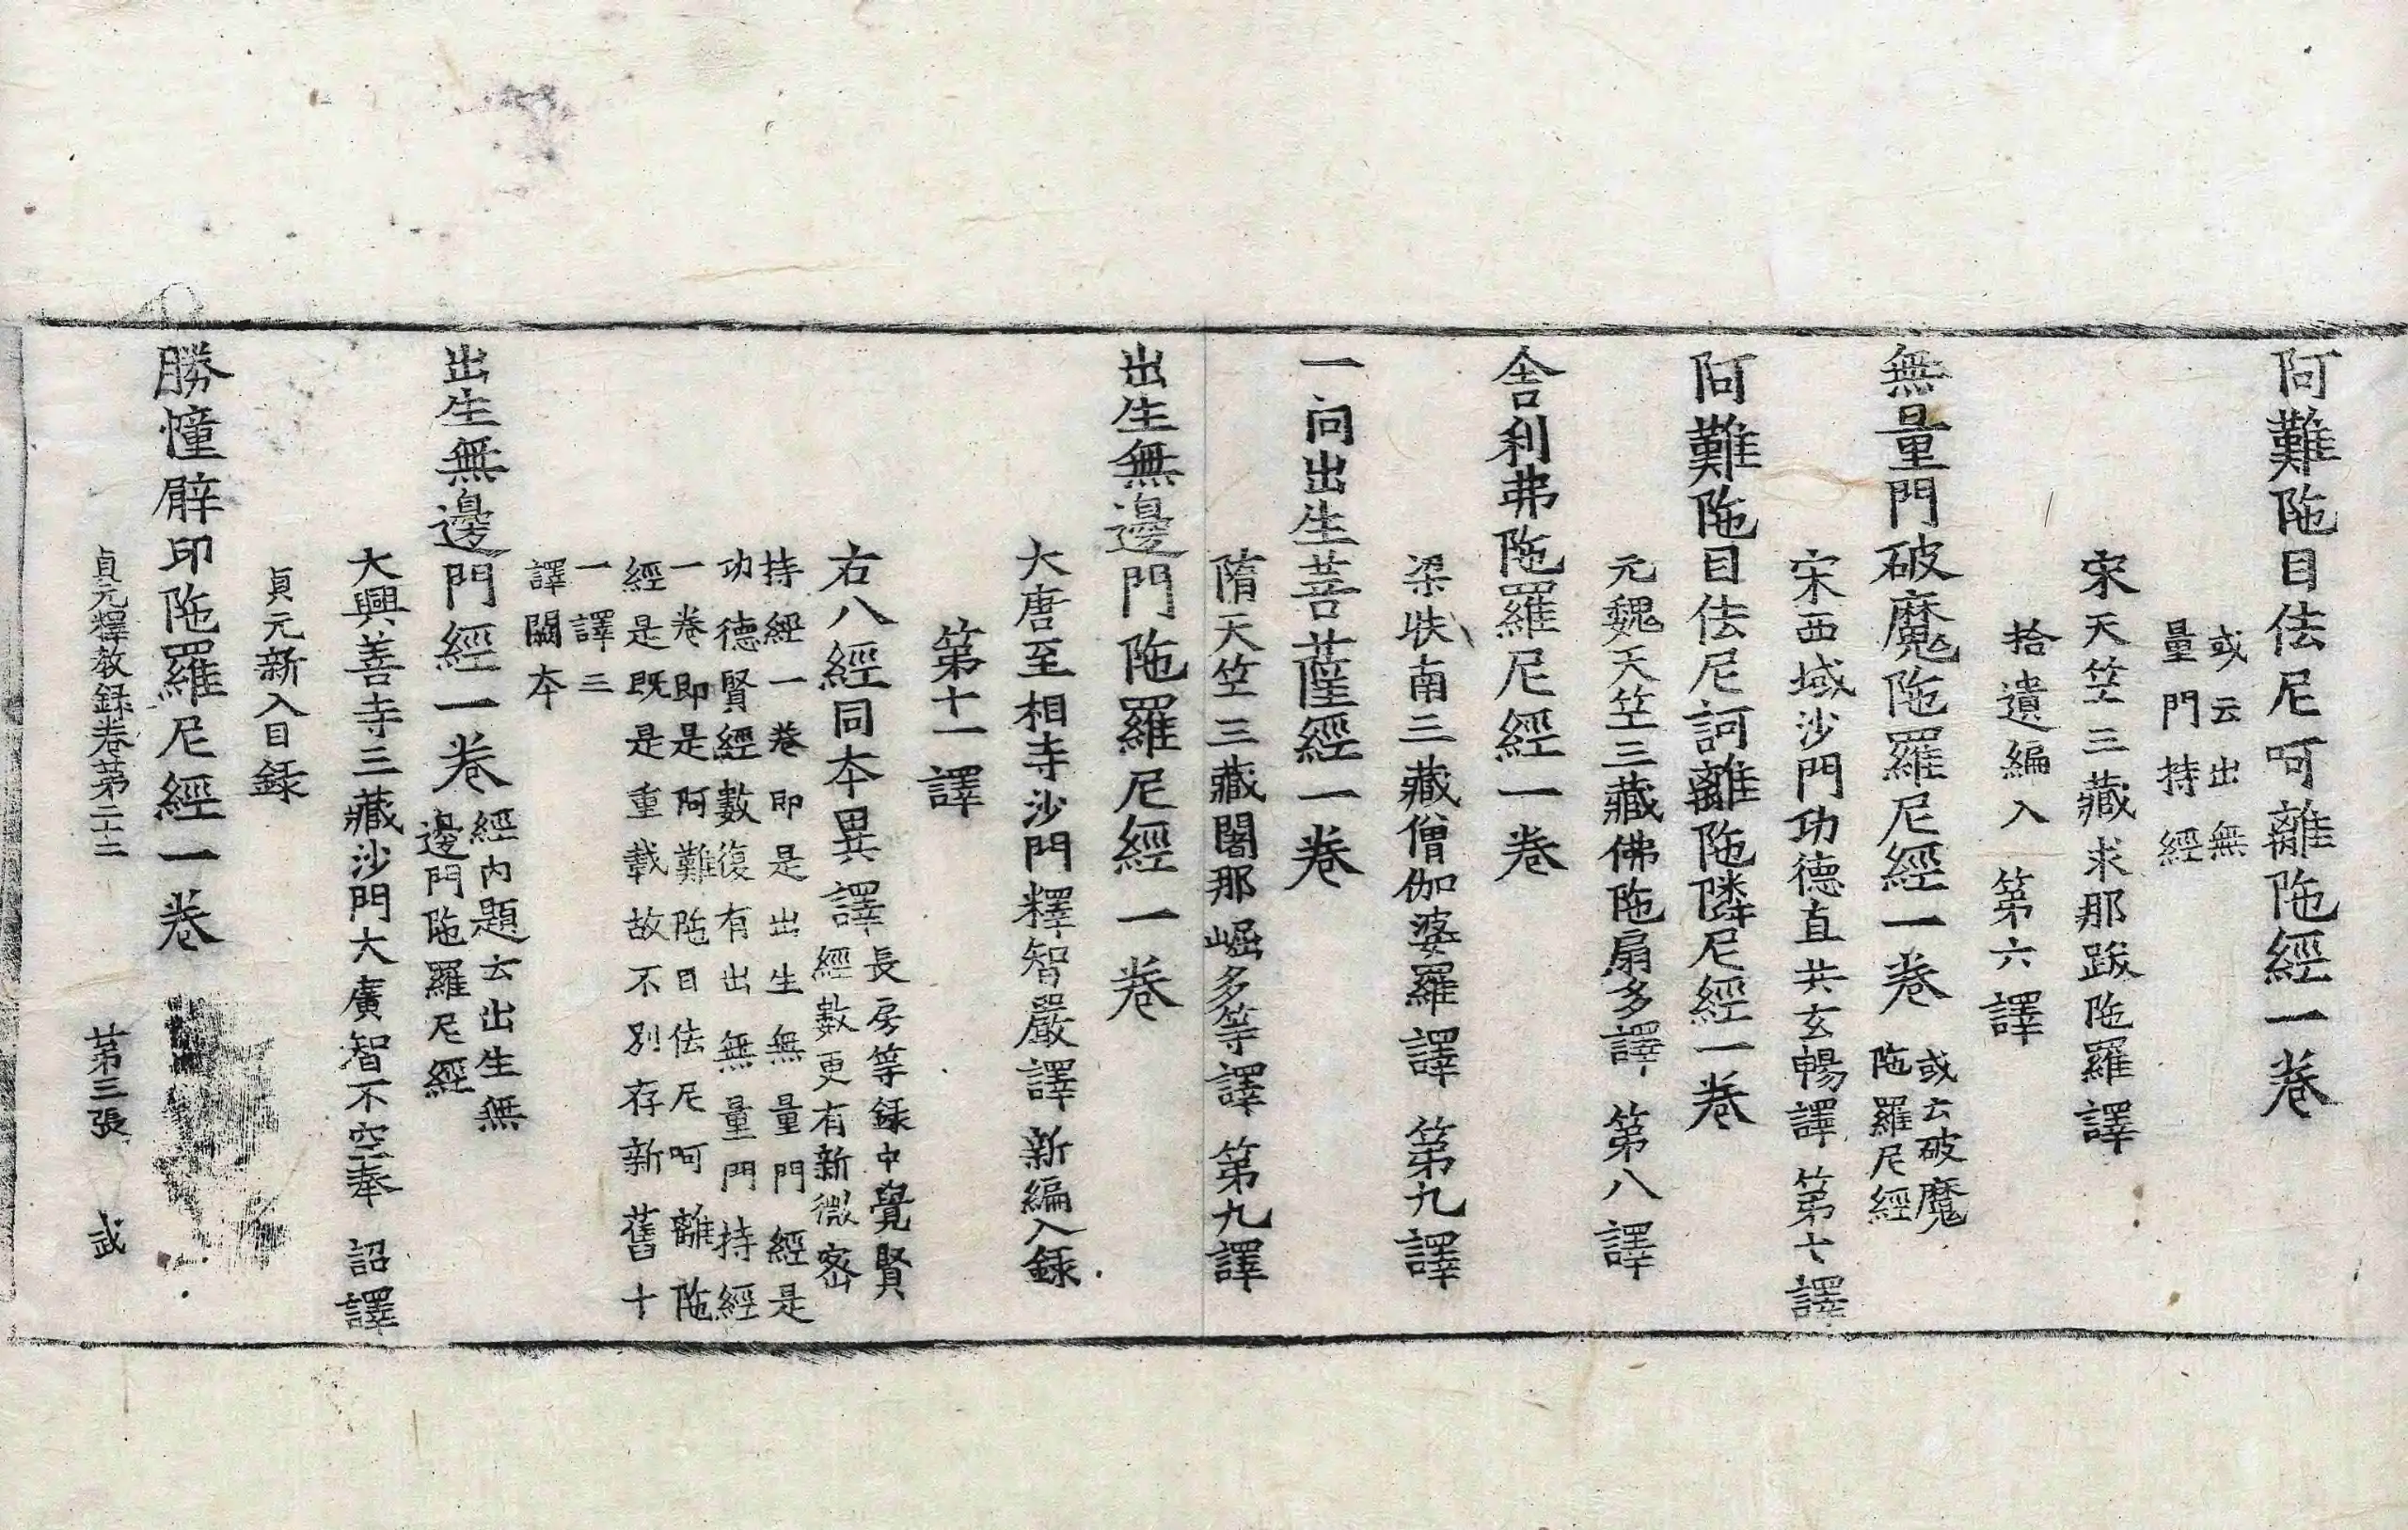 阿難陁目佉尼呵離陁經一卷
或云出無
量門持經
宋天竺三藏求那跋陁羅譯
拾遺編入 第六譯
無量門破魔陁羅尼經一卷
或云破魔
陁羅尼經
宋西域沙門功德直共玄暢譯 第七譯
阿難陁目佉尼訶離陁隣尼經一卷
元魏天竺三藏佛陁扇多譯 第八譯
舍利弗陁羅尼經一卷
梁扶南三藏僧伽婆羅譯 第九譯
一向出生菩薩經一卷
隋天竺三藏闍那崛多等譯 第九譯
出生無邊門陁羅尼經一卷
大唐至相寺沙門釋智嚴譯 新編入録
第十一譯
右八經同本異譯
長房等録中覺賢
經數更有新微密
持經一卷即是出生無量門經是
功德賢經數復有出無量門持經
一卷即是阿難陁目佉尼呵離陁
經是既是重載故不別存新舊十
一譯三
譯闕本
出生無邊門經一卷
經内題云出生無
邊門陁羅尼經
大興善寺三藏沙門大廣智不空奉 詔譯
貞元新入目録
勝憧辟印陁羅尼經一卷
貞元釋教録卷第二十二 第三張 武